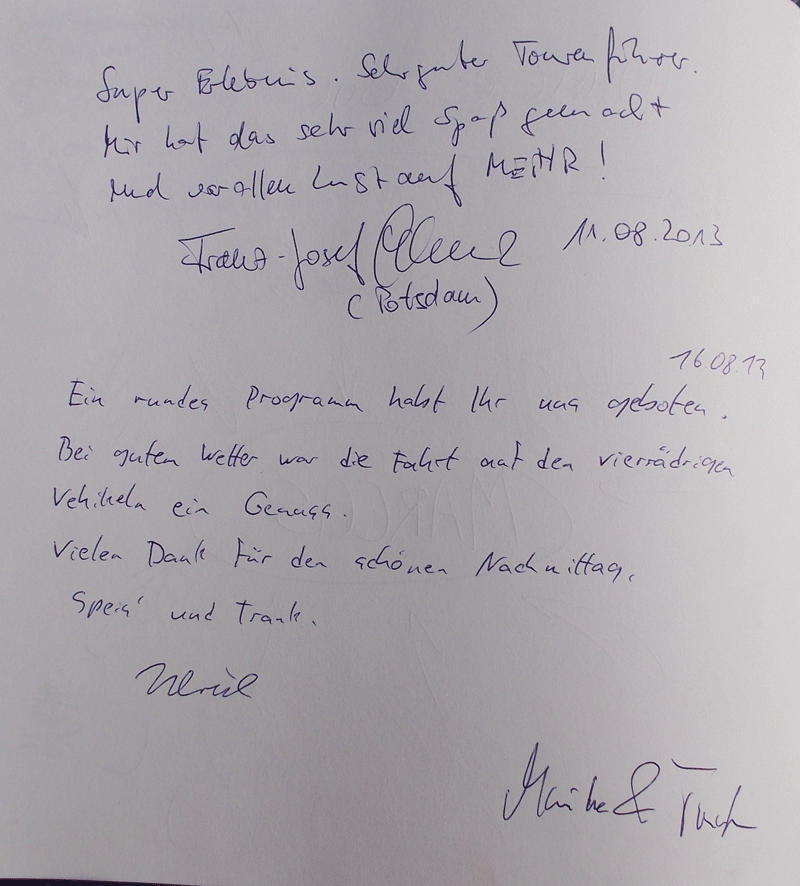 Super Erlebnis. Sehr guter Tourenführer.
Mir hat das sehr viel Spaß gemacht
und vor allem Lust auf MEHR!
Franz-Josef 11.08.2013
(Potsdam)
16.08.13
Ein rundes Programm habt Ihr uns geboten.
Bei guten Wetter war die Fahrt auf den vierrädrigen
Vehikeln ein Genuss.
Vielen Dank für den schönen Nachmittag,
Speis' und Trank.
Ulrich
&